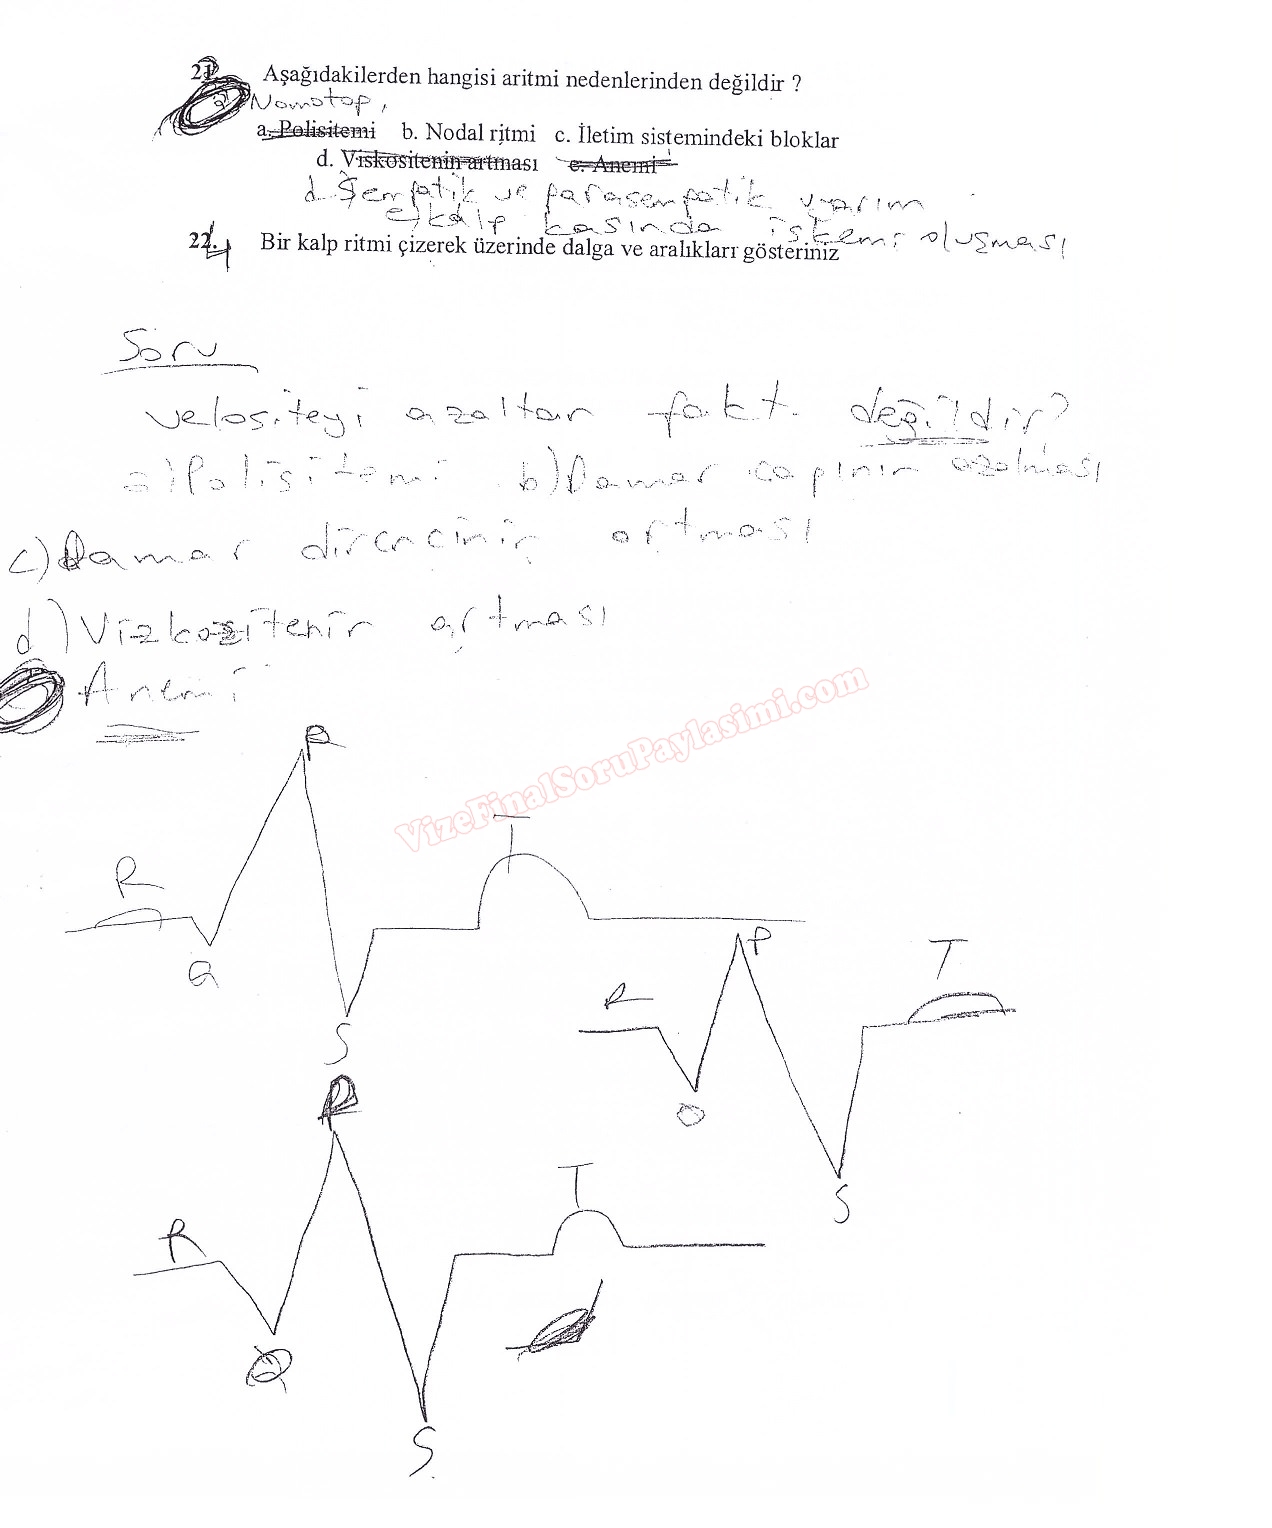 21. Aşağıdakilerden hangisi aritmi nedenlerinden değildir ?
Nomotop,
a. Polisitemi b. Nodal ritmi c. İletim sistemindeki bloklar
d. Viskositenin artması e. Anemi
d. Sempatik ve parasempatik uyarım
e) kalp kasında iskemi oluşması
22. Bir kalp ritmi çizerek üzerinde dalga ve aralıkları gösteriniz
Soru
velositeyi azaltan fakt. değildir?
a) Polisitemi b) Damar çapının azalması
c) Damar direncinin artması
d) Vizkozitenin artması
Anemi
VizeFinalSoruPaylasimi.com
R
T
R
Q
S
P
T
R
Q
S
R
T
R
Q
S